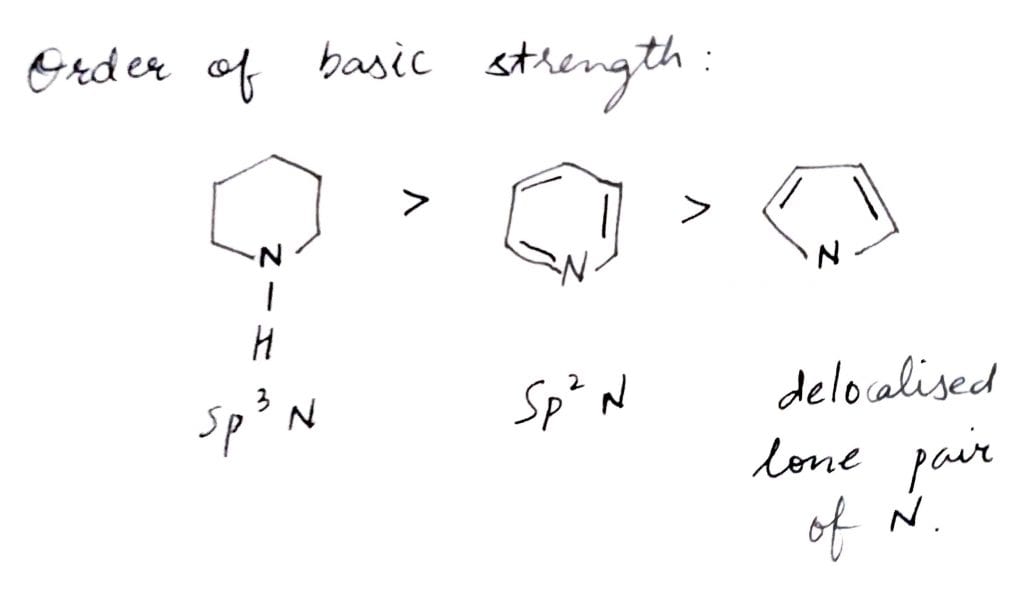 Order of basic strength :
> >
N N N
H
Sp³ N Sp² N delocalised
lone pair
of N.